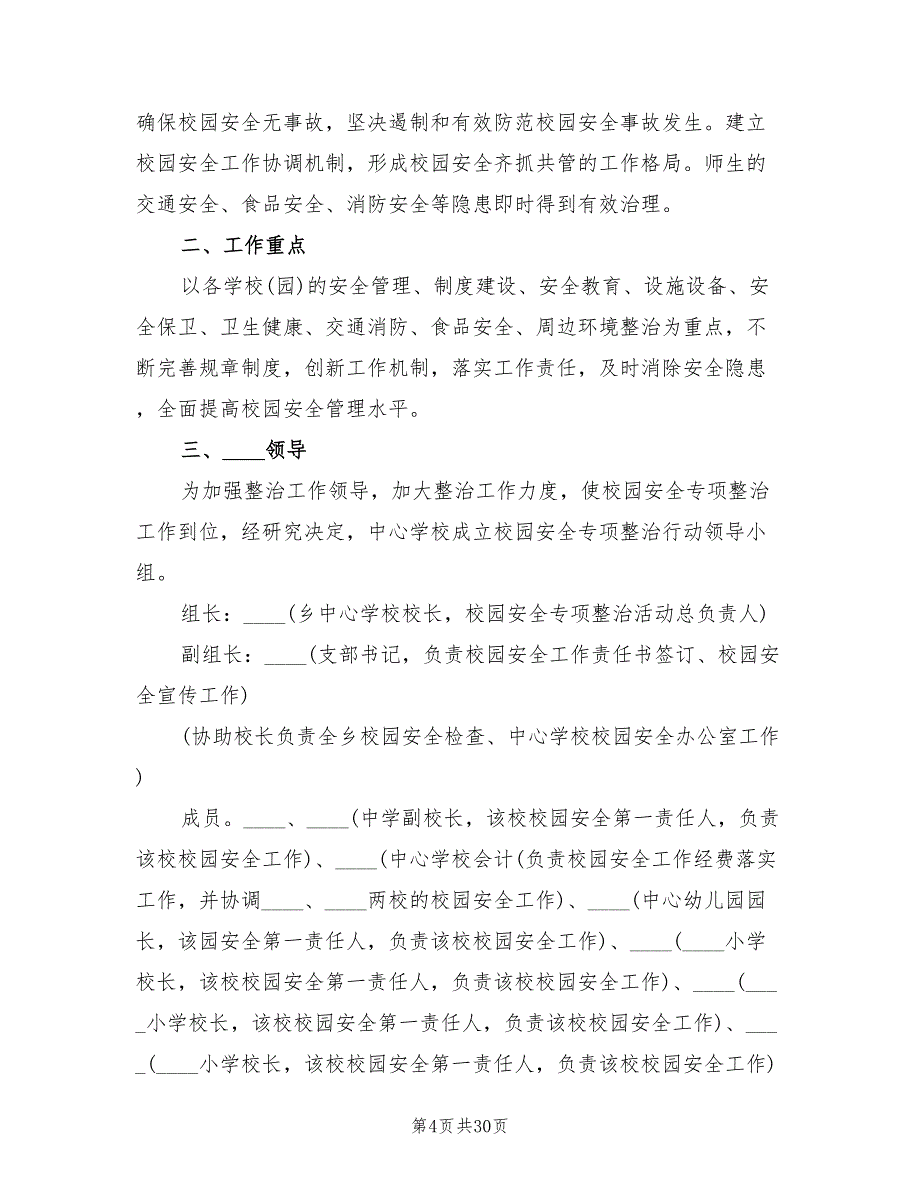 确保校园安全无事故，坚决遏制和有效防范校园安全事故发生。建立
校园安全工作协调机制，形成校园安全齐抓共管的工作格局。师生的
交通安全、食品安全、消防安全等隐患即时得到有效治理。
二、工作重点
以各学校(园)的安全管理、制度建设、安全教育、设施设备、安
全保卫、卫生健康、交通消防、食品安全、周边环境整治为重点，不
断完善规章制度，创新工作机制，落实工作责任，及时消除安全隐患
，全面提高校园安全管理水平。
三、____领导
为加强整治工作领导，加大整治工作力度，使校园安全专项整治
工作到位，经研究决定，中心学校成立校园安全专项整治行动领导小
组。
组长：____(乡中心学校校长，校园安全专项整治活动总负责人)
副组长：____(支部书记，负责校园安全工作责任书签订、校园安
全宣传工作)
(协助校长负责全乡校园安全检查、中心学校校园安全办公室工作
)
成员。____、____(中学副校长，该校校园安全第一责任人，负责
该校校园安全工作)、____(中心学校会计(负责校园安全工作经费落实
工作，并协调____、____两校的校园安全工作)、____(中心幼儿园园
长，该园安全第一责任人，负责该校校园安全工作)、____(____小学
校长，该校校园安全第一责任人，负责该校校园安全工作)、____(___
_小学校长，该校校园安全第一责任人，负责该校校园安全工作)、___
_(____小学校长，该校校园安全第一责任人，负责该校校园安全工作)
第4页共30页